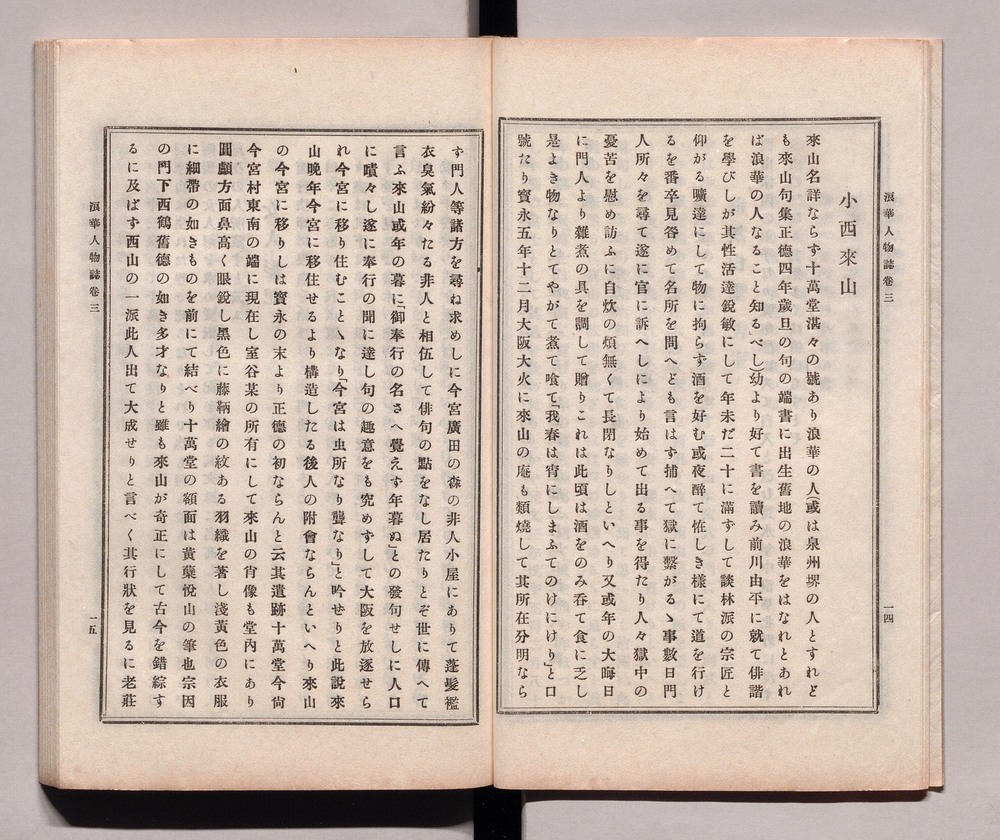 浪華人物誌卷三
一四
小西來山
來山名詳ならず十萬堂湛々の號あり浪華の人(或は泉州堺の人とすれど
も來山句集正德四年歲旦の句の端書に出生舊地の浪華をはなれとあれ
ば浪華の人なること知るべし)幼より好て書を讀み前川由平に就て俳諧
を學びしが其性活達銳敏にして年未だ二十に滿ずして談林派の宗匠と
仰がる曠達にして物に拘らず酒を好む或夜醉て恠しき樣にて道を行け
るを番卒見咎めて名所を問へども言はず捕へて獄に繫がるゝ事數日門
人所々を尋て遂に官に訴へしにより始めて出る事を得たり人々獄中の
憂苦を慰め訪ふに自炊の煩無くて長閑なりしといへり又或年の大晦日
に門人より雜煮の具を調して贈りこれは此頃は酒をのみ呑て食に乏し
是よき物なりとてやがて煮て喰て「我春は宵にしまふてのけにけり」と口
號たり寶永五年十二月大阪大火に來山の庵も類燒して其所在分明なら
す門人等諸方を尋ね求めしに今宮廣田の森の非人小屋にありて蓬髮襤
衣臭氣紛々たる非人と相伍して俳句の點をなし居たりとぞ世に傳へて
言ふ來山或年の暮に「御奉行の名さへ覺えず年暮ぬ」との發句せしに人口
に嘖々し遂に奉行の聞に達し句の趣意をも究めずして大阪を放逐せら
れ今宮に移り住むことゝなり「今宮は虫所なり聾なり」と吟せりと此說來
山晚年今宮に移住せるより構造したる後人の附會ならんといへり來山
の今宮に移りしは寶永の末より正德の初ならんと云其遺跡十萬堂今尙
今宮村東南の端に現在し室谷某の所有にして來山の肖像も堂內にあり
圓顱方面鼻高く眼銳し黑色に藤鞆繪の紋ある羽織を著し淺黃色の衣服
に細帶の如きものを前にて結べり十萬堂の額面は黃蘗悅山の筆也宗因
の門下西鶴舊德の如き多才なりと雖も來山が奇正にして古今を錯綜す
るに及ばず西山の一派此人出て大成せりと言べく其行狀を見るに老莊
浪華人物誌卷三
一五